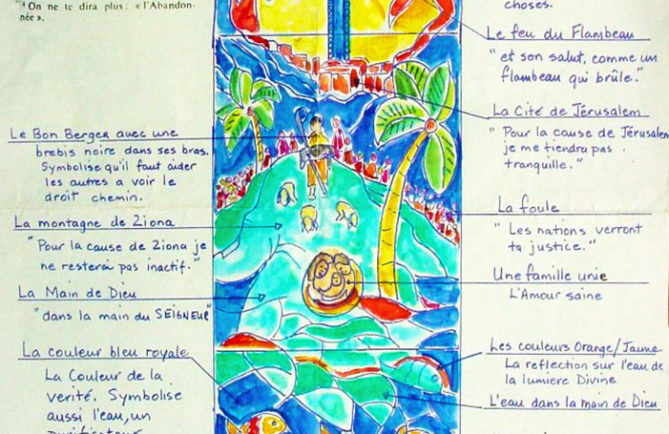 ⁴ On ne te dira plus : « l'Abandon-
née ».
Le Bon Berger avec une
brebis noire dans ses bras.
Symbolise qu'il faut aider
les autres a voir le
droit chemin.
La montagne de Ziona
"Pour la cause de Ziona je
ne resterai pas inactif."
La Main de Dieu
"dans la main du SEIGNEUR"
La couleur bleu royale
La Couleur de la
verité. Symbolise
aussi l'eau, un
purificateur
choses.
Le feu du Flambeau
"et son salut, comme un
flambeau qui brûle."
La Cité de Jérusalem
"Pour la cause de Jérusalem
je me tiendru pas
tranquille."
La foule
"Les nations verront
ta justice."
Une famille unie
L'Amour saine
Les couleurs Orange/Jaune
La reflection sur l'eau de
la lumiere Divine
L'eau dans la main de Dieu